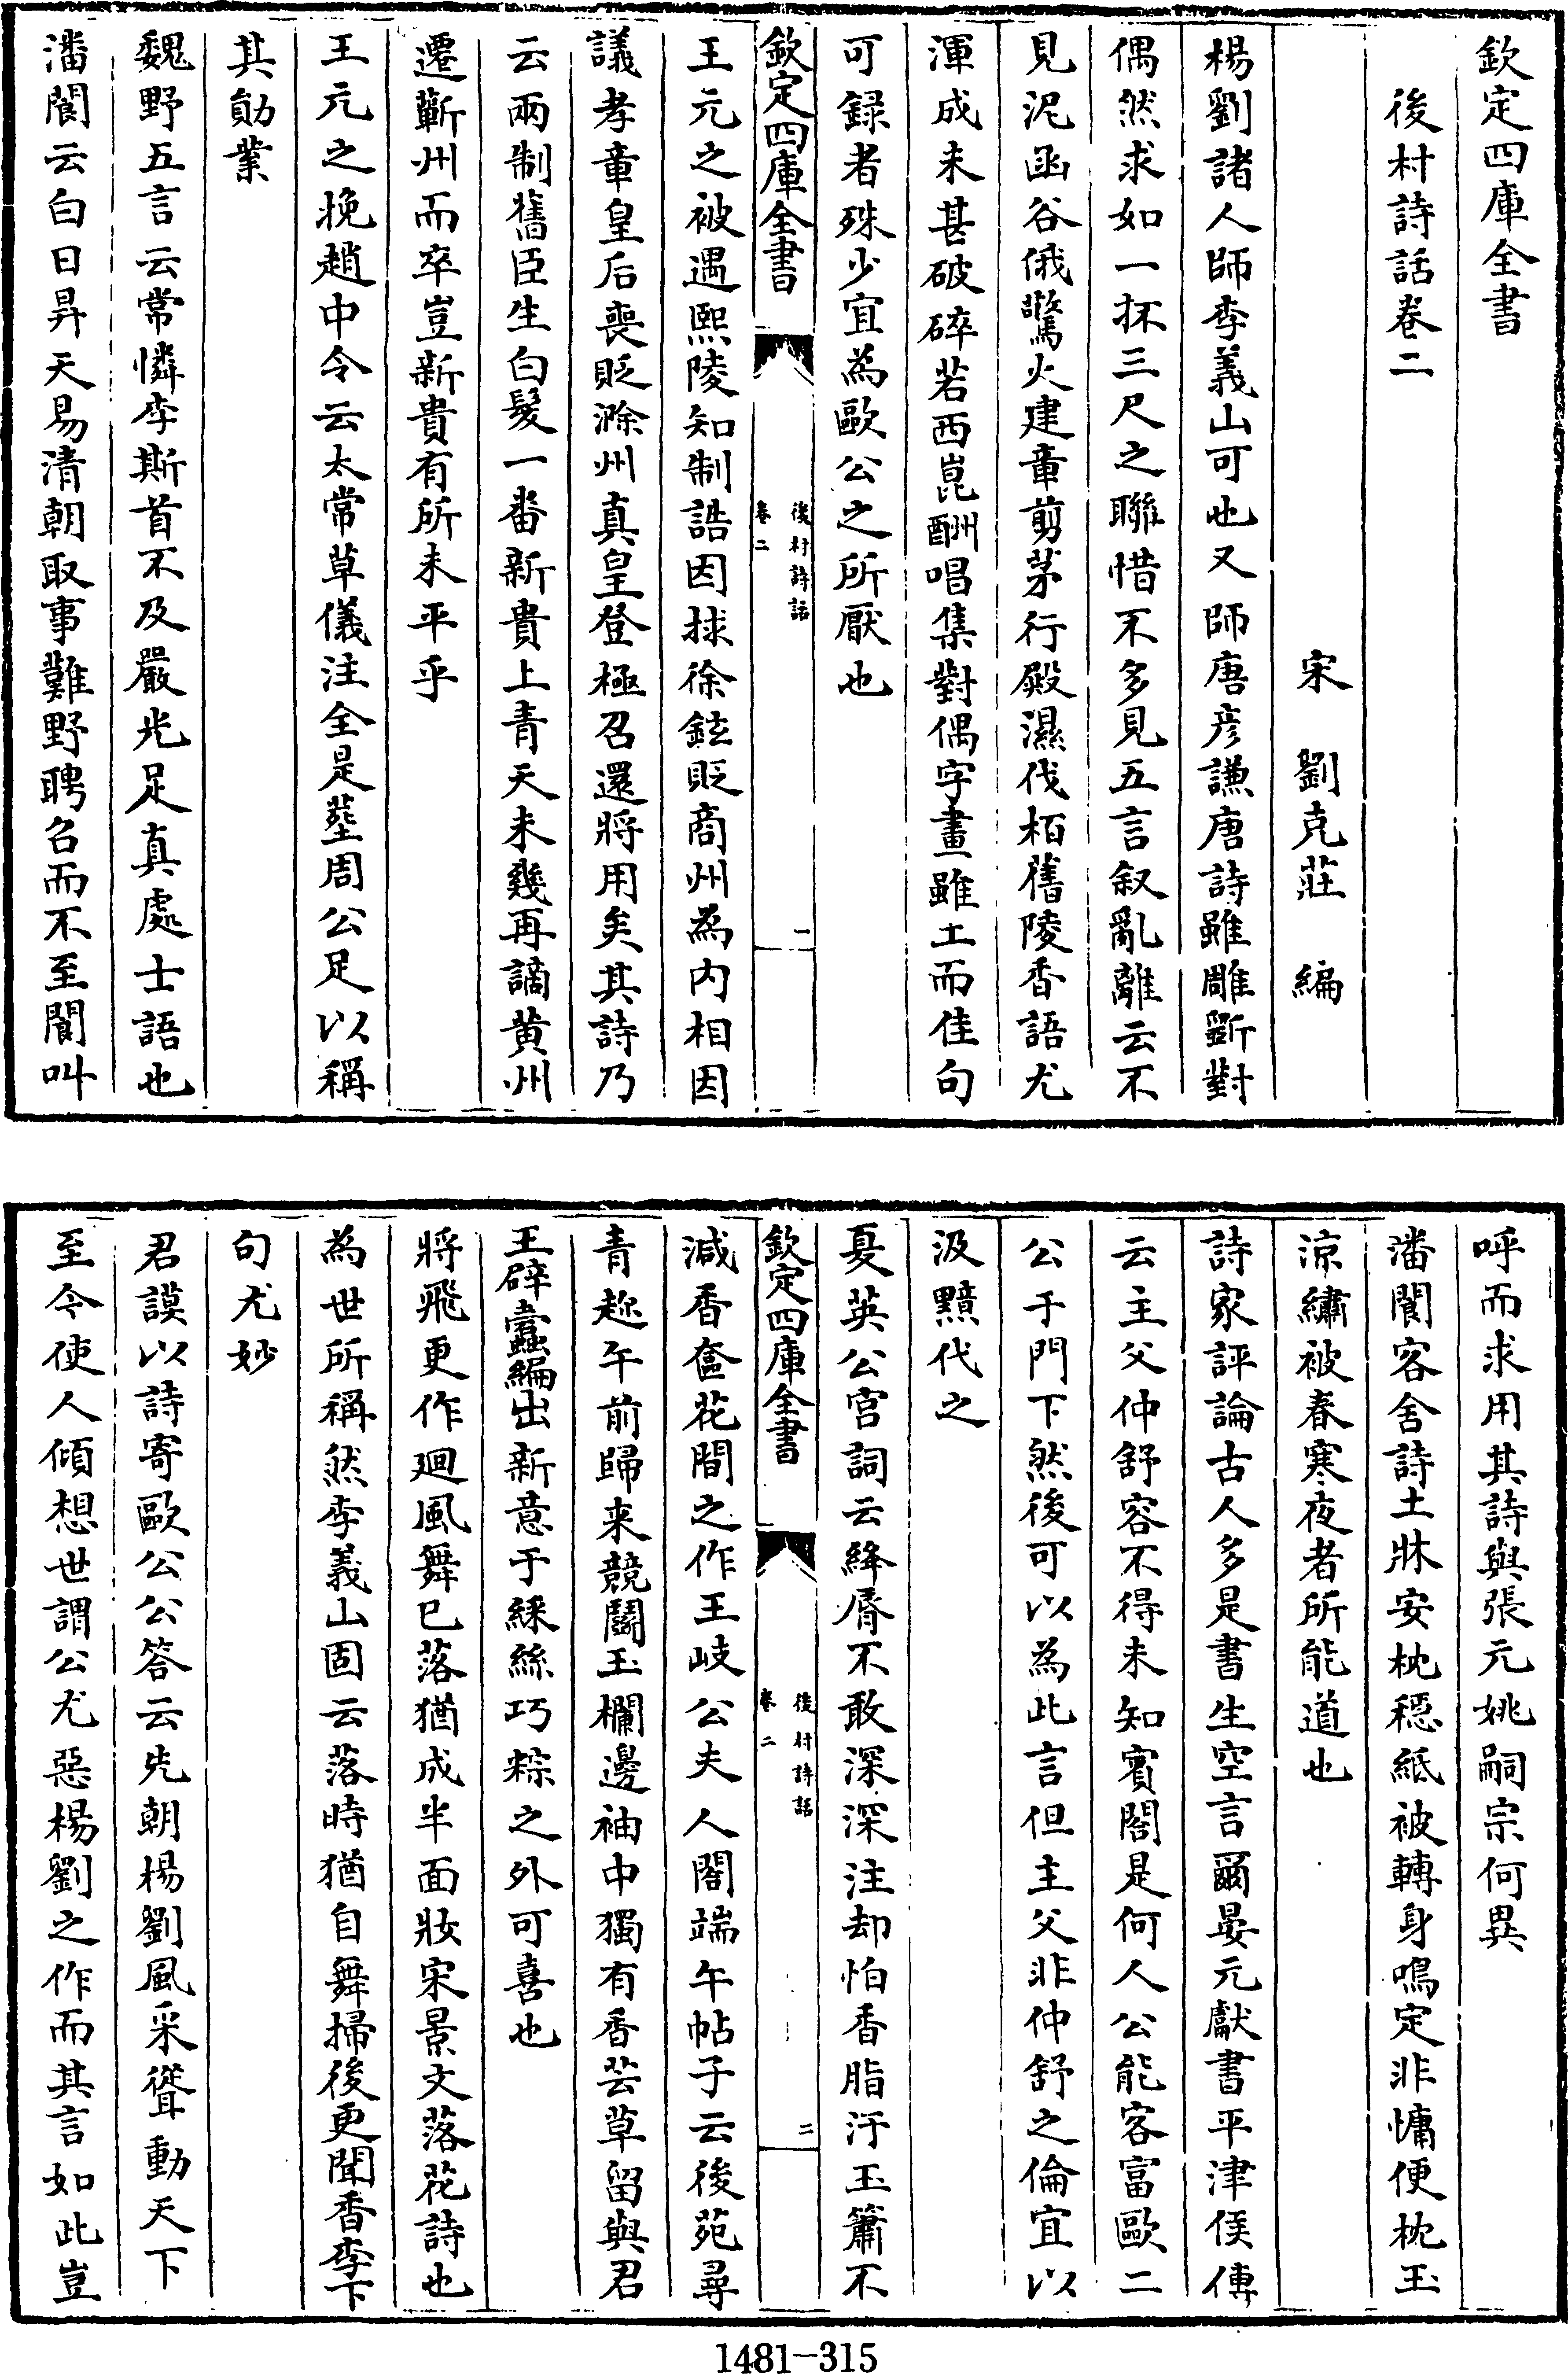 欽定四庫全書
後村詩話卷二
宋　劉克莊　編
楊劉諸人師李義山可也又師唐彥謙唐詩雖雕斵對
偶然求如一抔三尺之聯惜不多見五言叙亂離云不
見泥函谷俄驚火建章剪茅行殿濕伐栢舊陵香語尤
渾成未甚破碎若西崑酬唱集對偶字畫雖工而佳句
可録者殊少宜為歐公之所厭也
欽定四庫全書
後村詩話
卷二
一
王元之被遇熙陵知制誥因捄徐鉉貶商州為内相因
議孝章皇后喪貶滁州真皇登極召還將用矣其詩乃
云兩制舊臣生白髮一番新貴上青天未幾再謫黄州
遷蘄州而卒豈新貴有所未平乎
王元之挽趙中令云太常草儀注全是塟周公足以稱
其勛業
魏野五言云常憐李斯首不及嚴光足真處士語也
潘閬云白日昇天易清朝取事難野聘召而不至閬叫
呼而求用其詩與張元姚嗣宗何異
潘閬客舍詩土牀安枕穏紙被轉身鳴定非慵便枕玉
涼繡被春寒夜者所能道也
詩家評論古人多是書生空言爾晏元獻書平津侯傳
云主父仲舒容不得未知賓閣是何人公能客富歐二
公于門下然後可以為此言但主父非仲舒之倫宜以
汲黯代之
夏英公宫詞云絳脣不敢深深注却怕香脂汙玉簫不
欽定四庫全書
後村詩話
卷二
二
減香奩花間之作王岐公夫人閣端午帖子云後苑尋
青趂午前歸来競鬬玉欄邊袖中獨有香芸草留與君
王辟蠹編出新意于綵絲巧粽之外可喜也
將飛更作廻風舞已落猶成半面妝宋景文落花詩也
為世所稱然李義山固云落時猶自舞掃後更聞香李下
句尤妙
君謨以詩寄歐公公答云先朝楊劉風采聳動天下
至今使人傾想世謂公尤惡楊劉之作而其言如此豈
1481—315